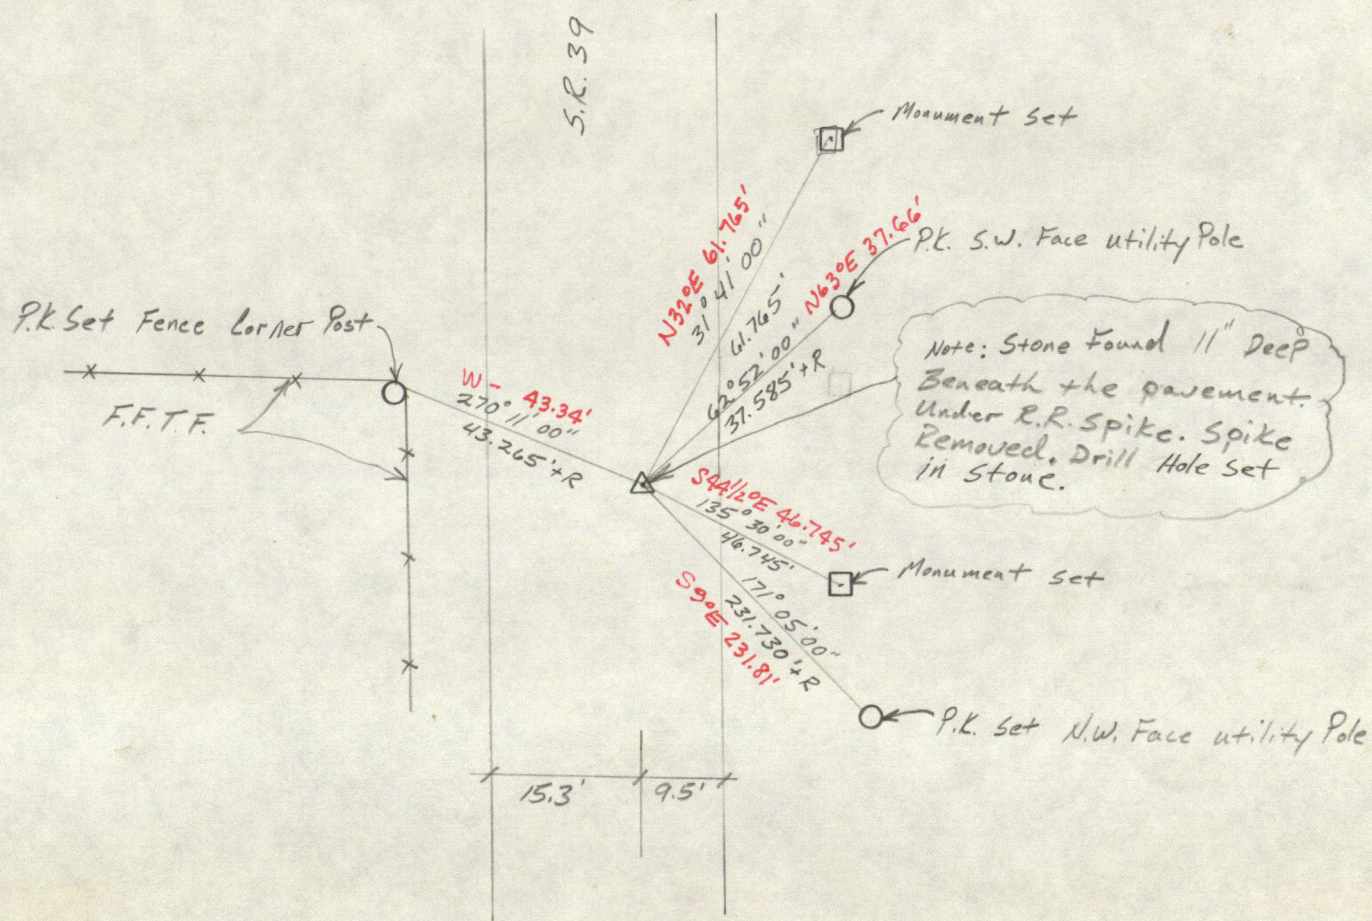 S.R. 39
Monument Set
N32°E 61.765'
31° 41' 00"
61.765'
P.K. S.W. Face utility Pole
N63°E 37.66'
62° 52' 00"
37.585' + R
P.K. Set Fence Corner Post
F.F.T.F.
W - 43.34'
270° 11' 00"
43.265' + R
Note: Stone Found 11" Deep
Beneath the pavement.
Under R.R. Spike. Spike
Removed. Drill Hole Set
in Stone.
S44 1/2°E 46.745'
135° 30' 00"
46.745'
Monument Set
171° 05' 00"
231.730' + R
S9°E 231.81'
P.K. Set N.W. Face utility Pole
15.3'
9.5'